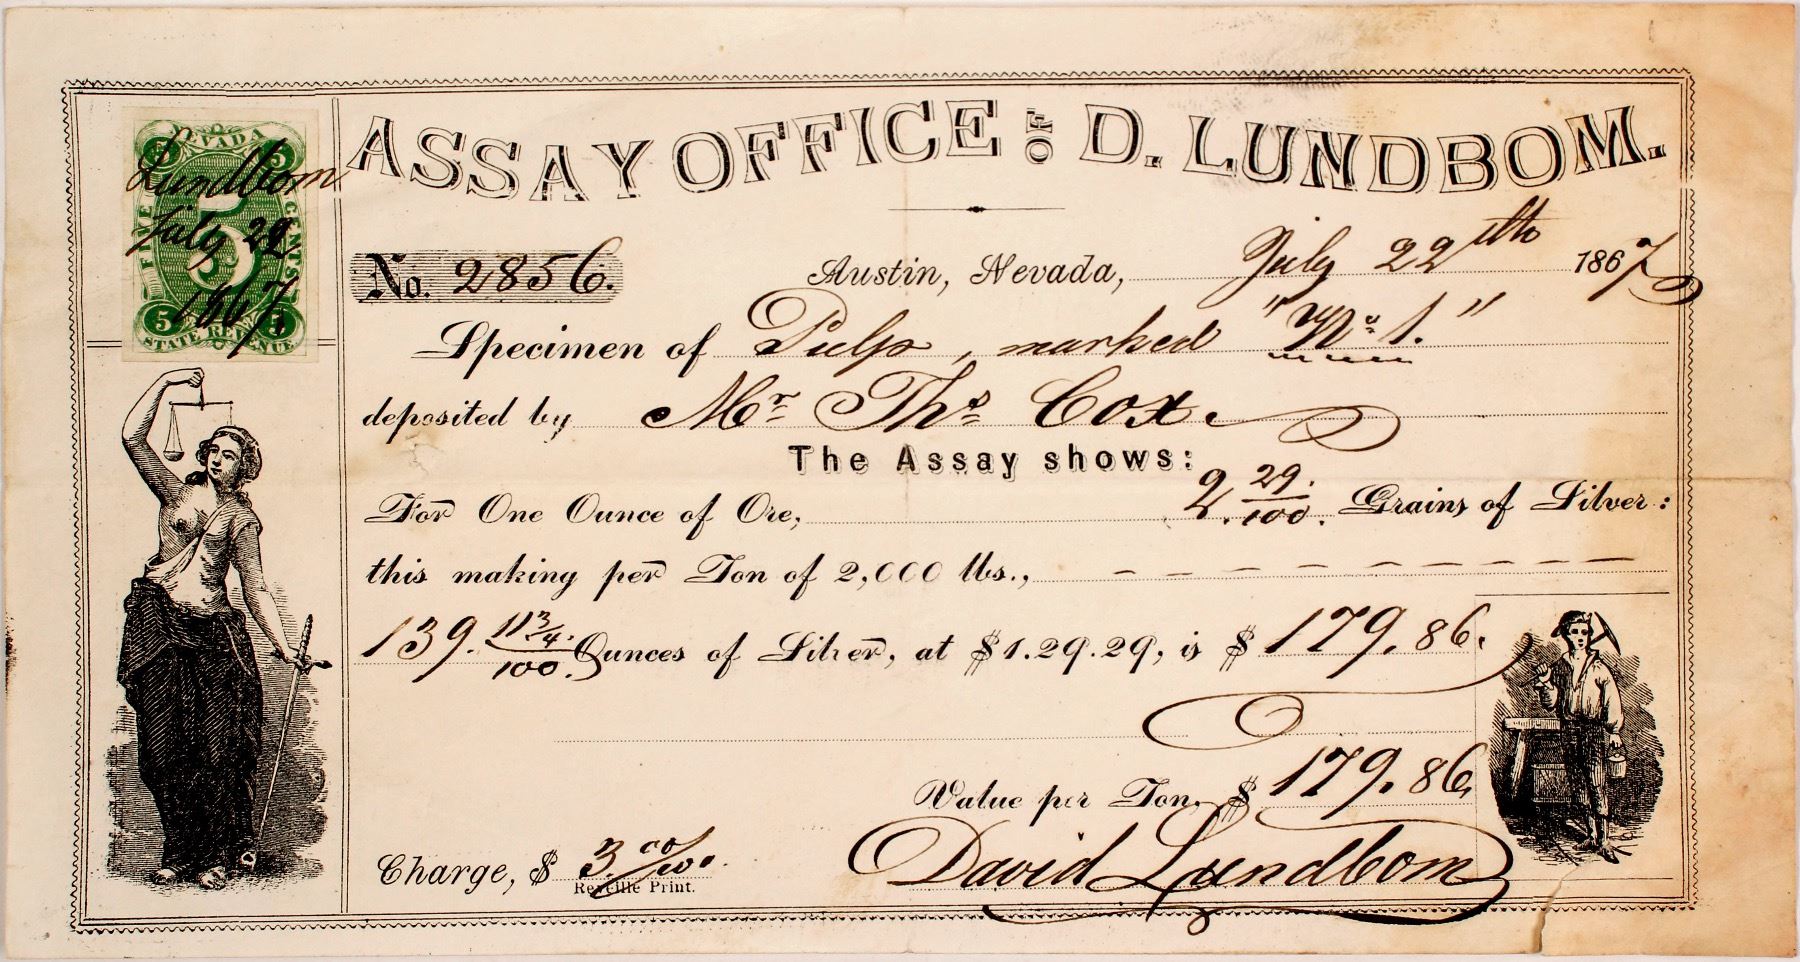 NEVADA
FIVE CENTS
5 5
5
5 5
STATE REVENUE
Lundbom
July 22
1867
ASSAY OFFICE OF D. LUNDBOM.
No. 2856. Austin, Nevada, July 22th 1867
Specimen of Pulp, marked "No. 1."
deposited by Mr. Ths. Cox.
The Assay shows:
For One Ounce of Ore, 2. 29/100. Grains of Silver:
this making per Ton of 2,000 lbs., — — — — — — — — —
139. 11 3/4/100. Ounces of Silver, at $1.29.29, is $ 179.86.
Value per Ton, $ 179.86.
Charge, $ 3. 00/100. David Lundbom
Reveille Print.